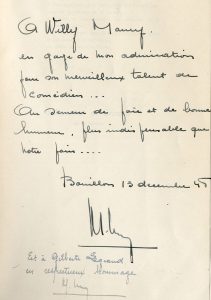 A Willy Maury,
en gage de mon admiration
pour son merveilleux talent de
comédien...
Au semeur de joie et de bonne
humeur, plus indispensable que
notre pain....
Bouillon 13 décembre 45
Et à Gilberte Legrand
en respectueux hommage